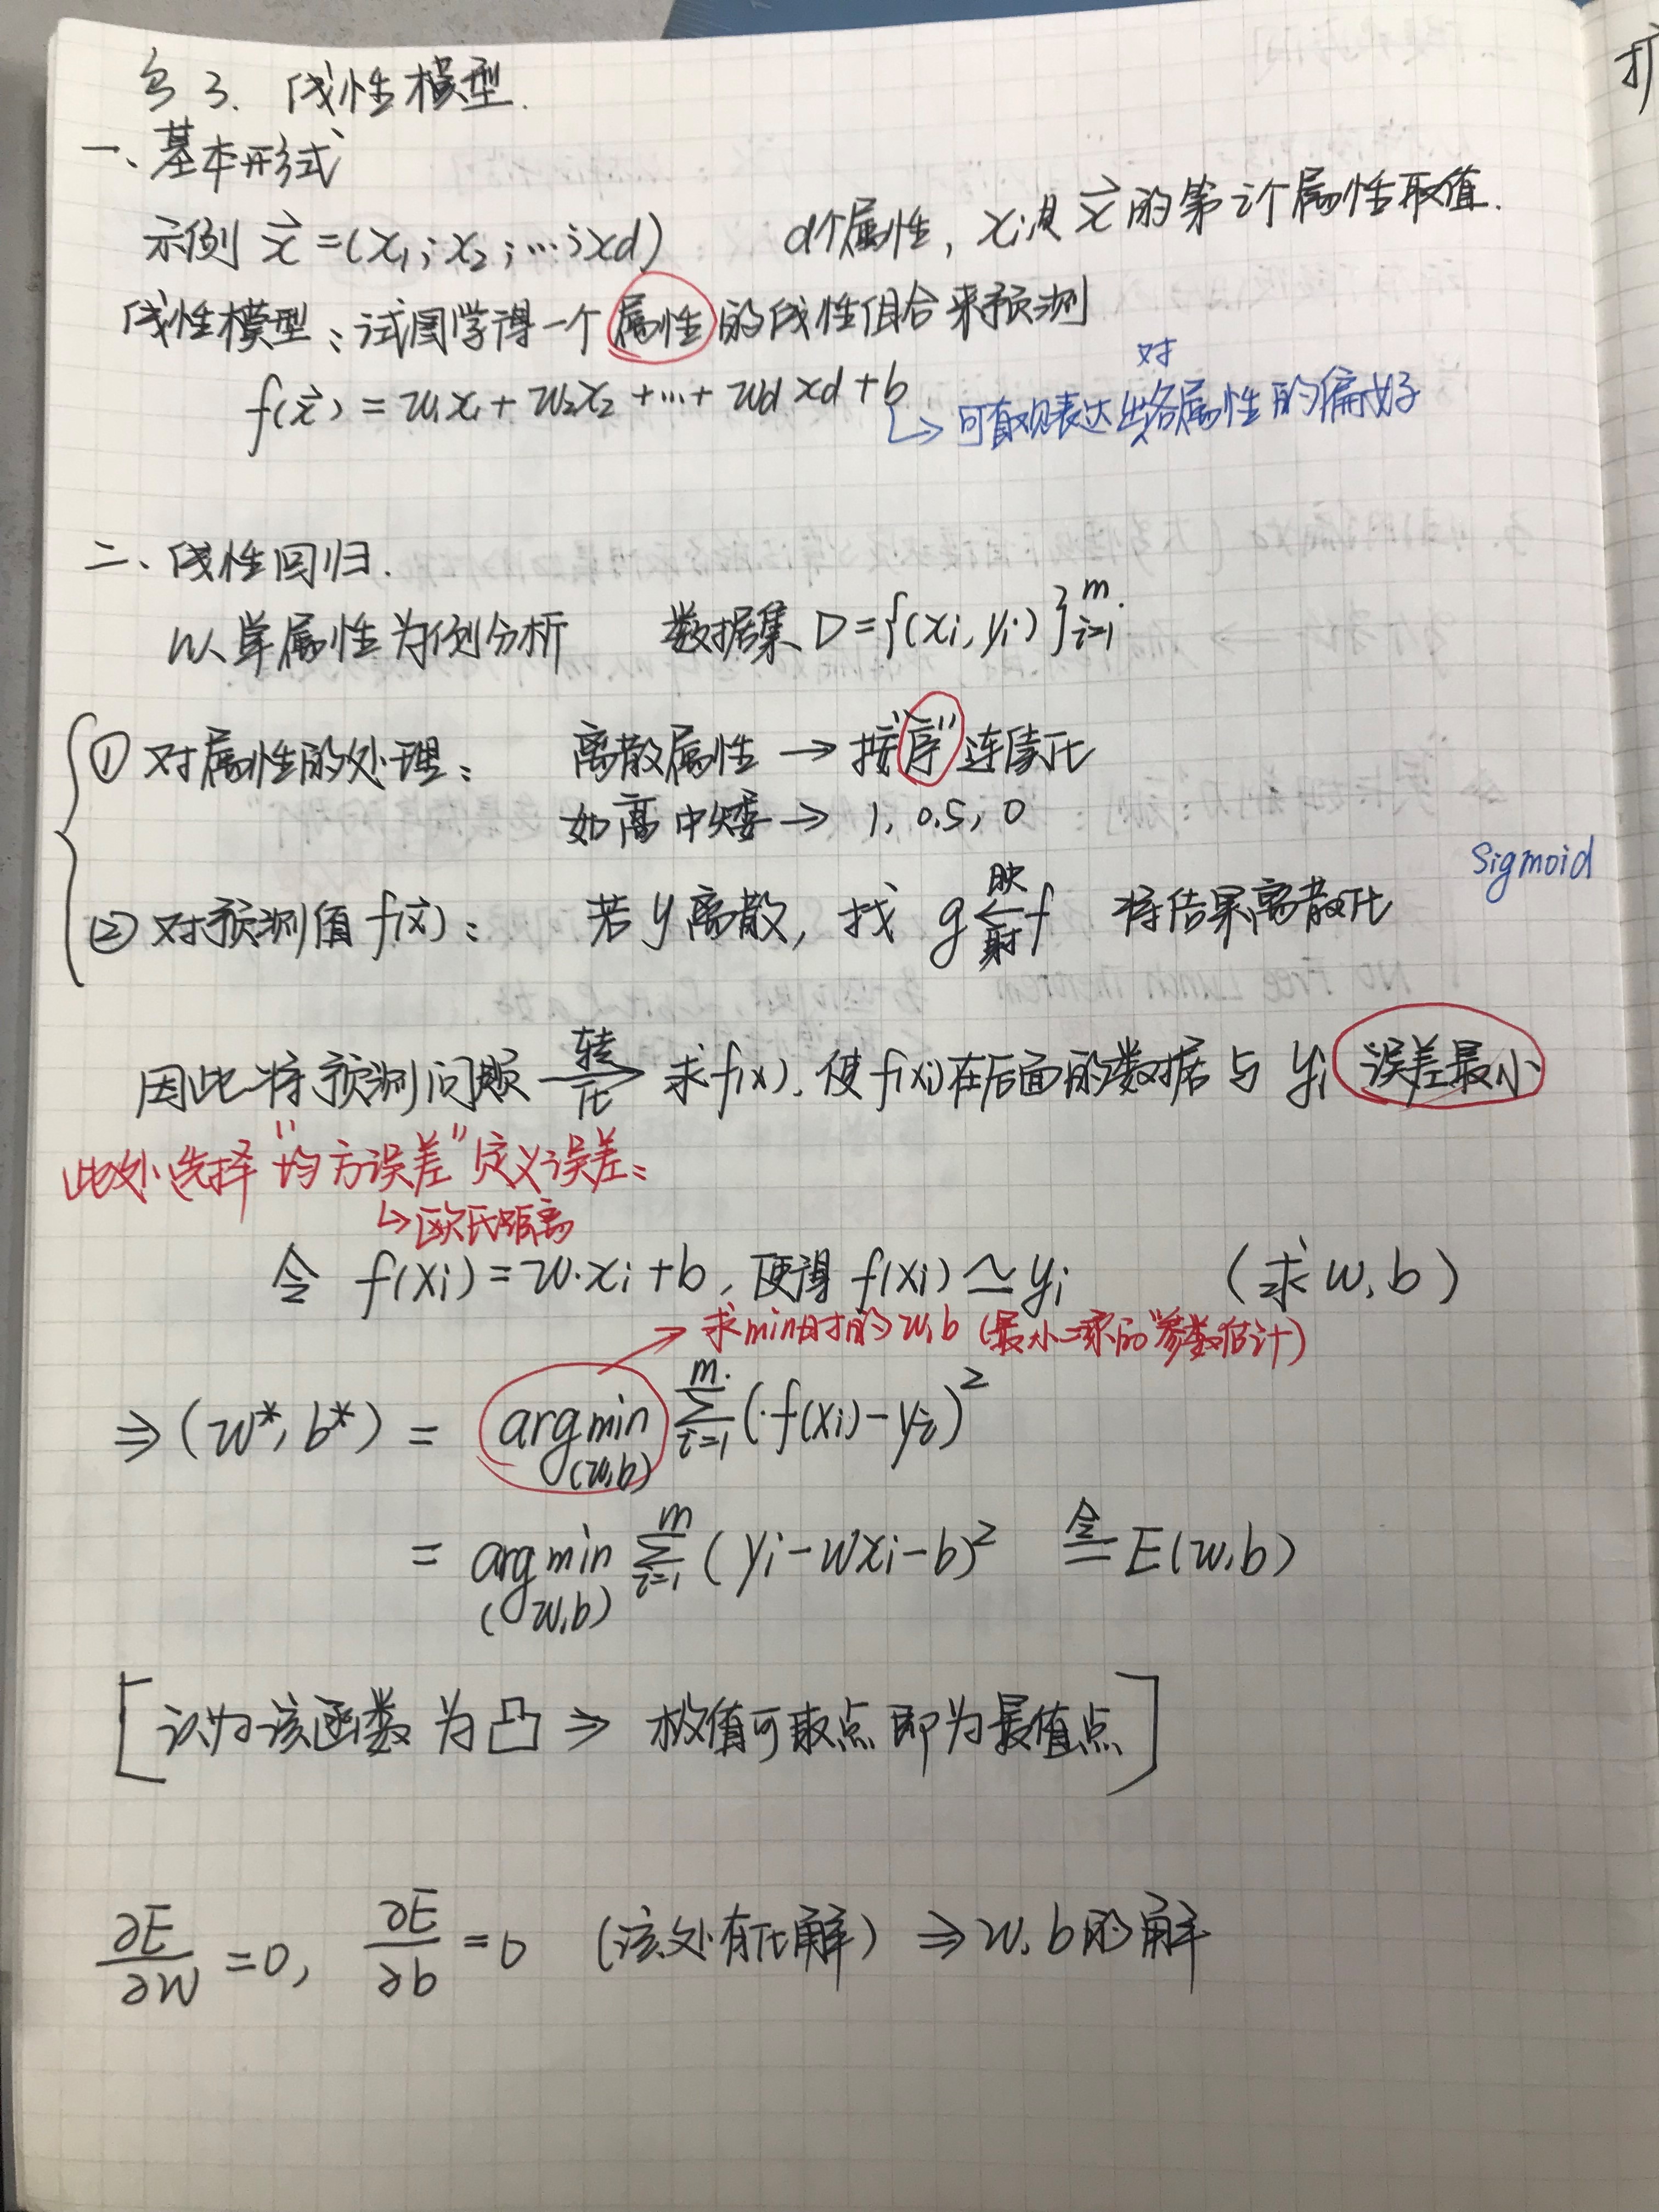 ち3. 线性模型.
一、基本形式
示例 x⃗ =(x₁; x₂; …; xd) d个属性, xi是 x⃗ 的第i个属性取值.
线性模型: 试图学得一个属性的线性组合来预测
对
f(x⃗) = w₁x₁ + w₂x₂ + … + wd xd + b ↳ 可直观表达出各属性的偏好
二、线性回归.
以单属性为例分析 数据集 D={(xi, yi)}ᵐᵢ₌₁.
① 对属性的处理: 离散属性 → 按"序"连续化
如高中矮 → 1, 0.5, 0
Sigmoid
② 对预测值 f(x⃗): 若 y 离散, 找 g ←映射 f 将结果离散化
因此将预测问题 转化→ 求f(x). 使f(xi)在后面的数据与 yi 误差最小
此处选择"均方误差"定义误差:
↳欧氏距离
令 f(xi) = w·xi + b, 使得 f(xi) ≃ yi (求 w, b)
→ 求min时的 w, b (最小二乘的"参数估计)
⇒ (w*, b*) = arg min (w,b) ∑ᵐᵢ₌₁ (f(xi) - yi)²
= arg min (w,b) ∑ᵐᵢ₌₁ (yi - wxi - b)² 令= E(w,b)
[认为该函数为凸 ⇒ 极值可取点即为最值点]
∂E/∂w = 0, ∂E/∂b = 0 (该处有化解) ⇒ w, b的解
扩